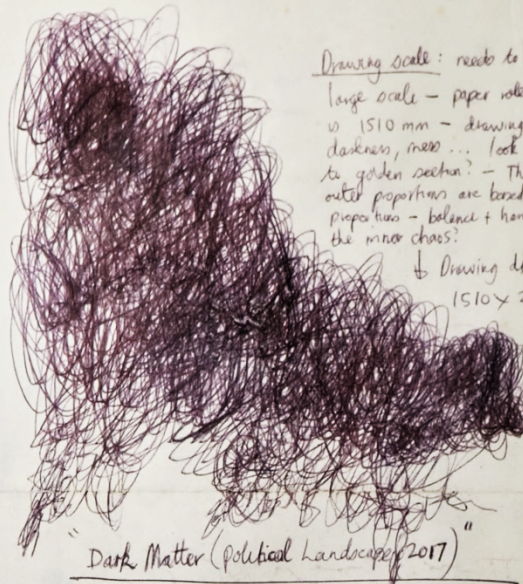 Drawing scale: needs to
large scale – paper role
is 1510 mm – drawing
darkness, mess ... look
to golden section? – Th
outer proportions are based
proportions – balance + har
the inner chaos?
↓ Drawing d
1510 x
"Dark Matter (political Landscape, 2017)"